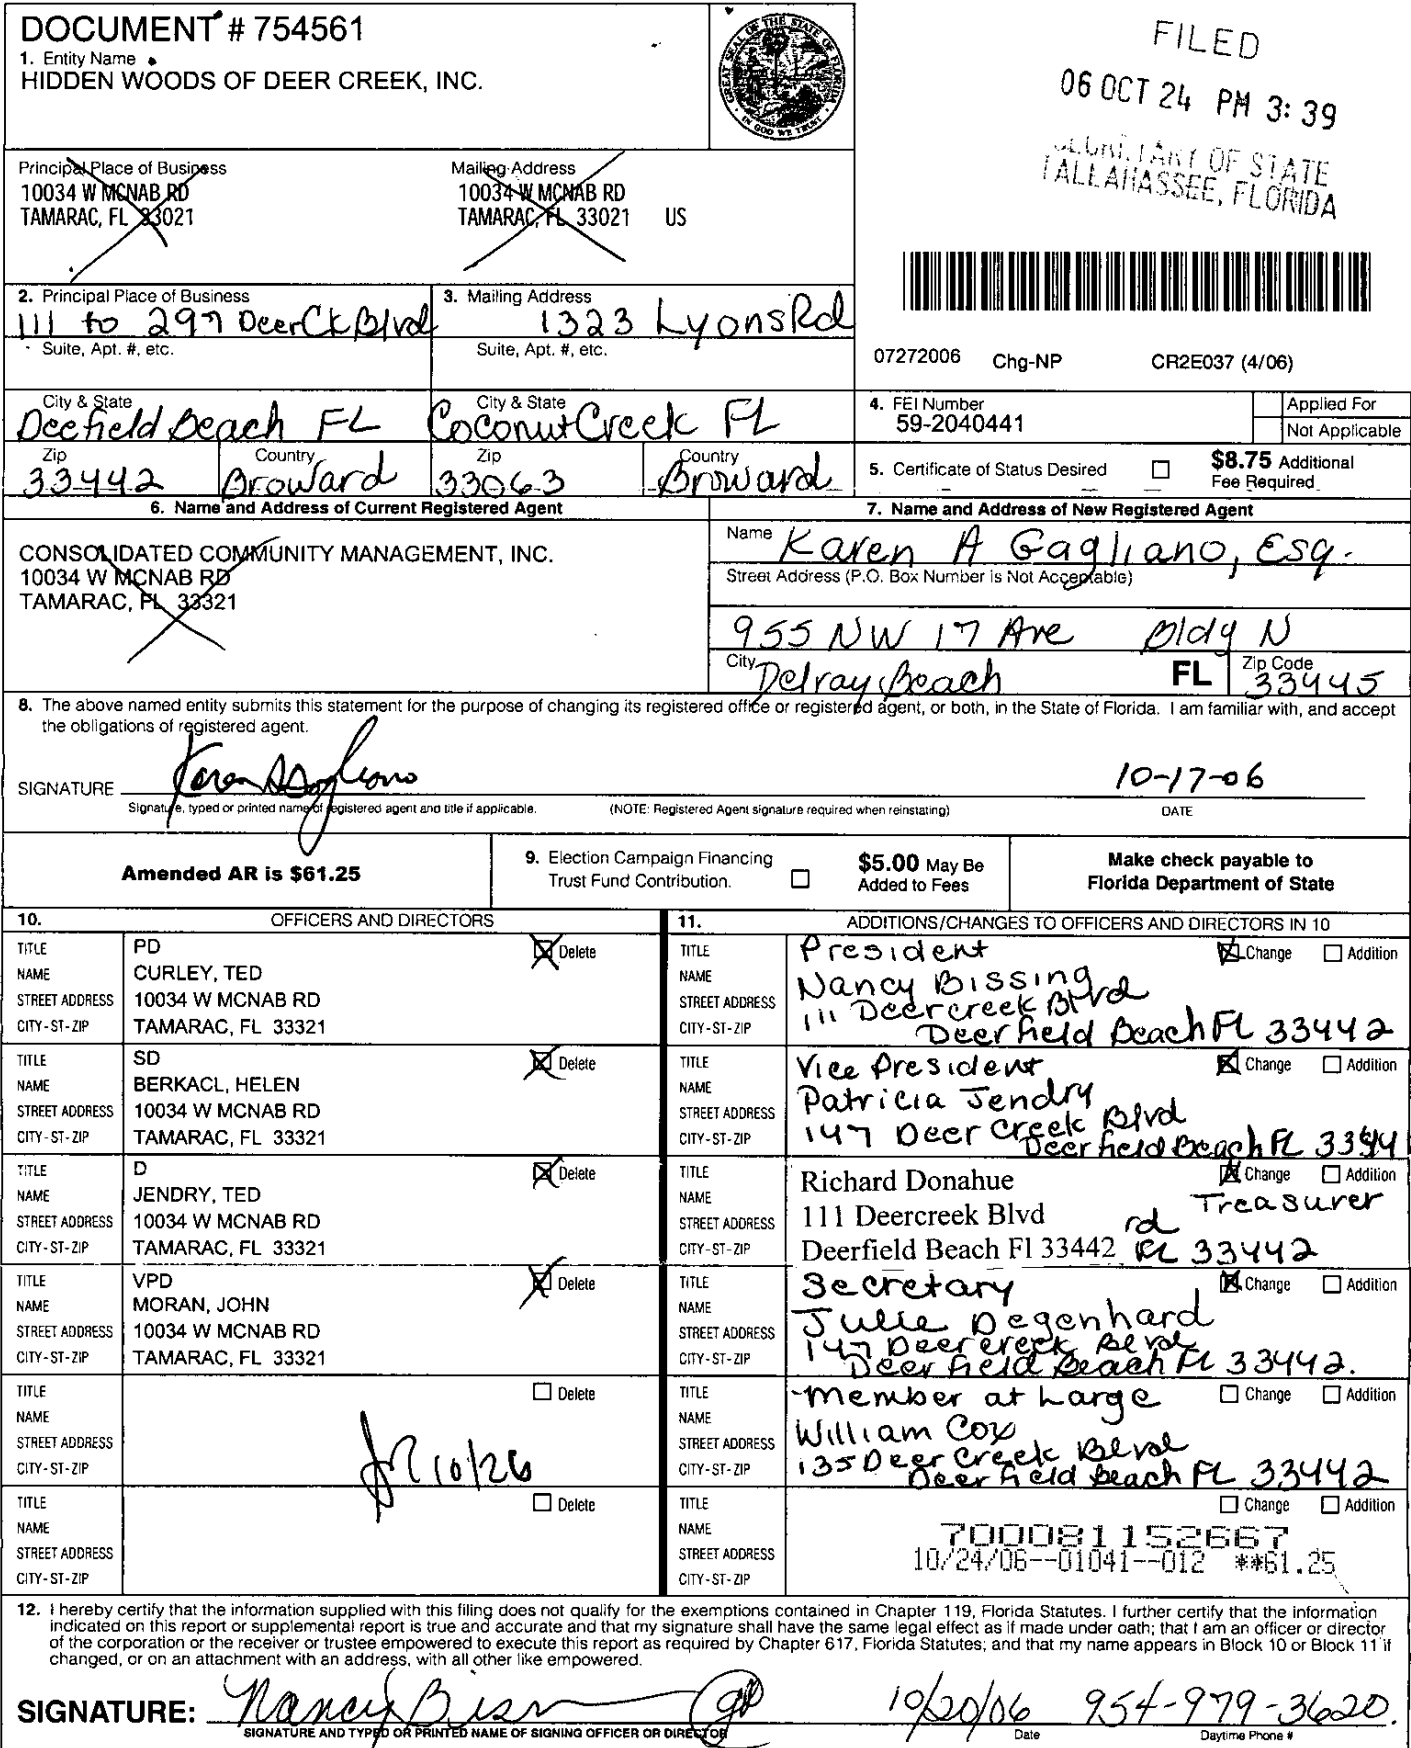 DOCUMENT # 754561
1. Entity Name
HIDDEN WOODS OF DEER CREEK, INC.
GREAT SEAL OF THE STATE OF FLORIDA
IN GOD WE TRUST
FILED
06 OCT 24 PM 3:39
SECRETARY OF STATE
TALLAHASSEE, FLORIDA
Principal Place of Business
10034 W MCNAB RD
TAMARAC, FL 33021
Mailing Address
10034 W MCNAB RD
TAMARAC, FL 33021 US
2. Principal Place of Business
111 to 297 DeerCk Blvd
Suite, Apt. #, etc.
3. Mailing Address
1323 Lyons Rd
Suite, Apt. #, etc.
07272006 Chg-NP CR2E037 (4/06)
City & State
Deefield Beach FL
City & State
Coconut Creek FL
Zip
33442
Country
Broward
Zip
33063
Country
Broward
4. FEI Number
59-2040441
Applied For
Not Applicable
5. Certificate of Status Desired
$8.75 Additional
Fee Required
6. Name and Address of Current Registered Agent
CONSOLIDATED COMMUNITY MANAGEMENT, INC.
10034 W MCNAB RD
TAMARAC, FL 33321
7. Name and Address of New Registered Agent
Name Karen A Gagliano, Esq.
Street Address (P.O. Box Number is Not Acceptable)
955 NW 17 Ave Bldg N
City Delray Beach FL Zip Code 33445
8. The above named entity submits this statement for the purpose of changing its registered office or registered agent, or both, in the State of Florida. I am familiar with, and accept
the obligations of registered agent.
SIGNATURE Karen A Gagliano 10-17-06
Signature, typed or printed name of registered agent and title if applicable. (NOTE: Registered Agent signature required when reinstating) DATE
Amended AR is $61.25
9. Election Campaign Financing
Trust Fund Contribution.
$5.00 May Be
Added to Fees
Make check payable to
Florida Department of State
10. OFFICERS AND DIRECTORS
TITLE PD Delete
NAME CURLEY, TED
STREET ADDRESS 10034 W MCNAB RD
CITY-ST-ZIP TAMARAC, FL 33321
TITLE SD Delete
NAME BERKACL, HELEN
STREET ADDRESS 10034 W MCNAB RD
CITY-ST-ZIP TAMARAC, FL 33321
TITLE D Delete
NAME JENDRY, TED
STREET ADDRESS 10034 W MCNAB RD
CITY-ST-ZIP TAMARAC, FL 33321
TITLE VPD Delete
NAME MORAN, JOHN
STREET ADDRESS 10034 W MCNAB RD
CITY-ST-ZIP TAMARAC, FL 33321
TITLE Delete
NAME
STREET ADDRESS
CITY-ST-ZIP 10/26
TITLE Delete
NAME
STREET ADDRESS
CITY-ST-ZIP
11. ADDITIONS/CHANGES TO OFFICERS AND DIRECTORS IN 10
TITLE President Change Addition
NAME Nancy Bissing
STREET ADDRESS 111 Deercreek Blvd
CITY-ST-ZIP Deerfield Beach FL 33442
TITLE Vice President Change Addition
NAME Patricia Jendry
STREET ADDRESS 147 Deer Creek Blvd
CITY-ST-ZIP Deerfield Beach FL 3344
TITLE Richard Donahue Change Addition
NAME Treasurer
STREET ADDRESS 111 Deercreek Blvd rd
CITY-ST-ZIP Deerfield Beach Fl 33442 FL 33442
TITLE Secretary Change Addition
NAME Julie Degenhard
STREET ADDRESS 147 Deercreek Blvd
CITY-ST-ZIP Deerfield Beach FL 33442.
TITLE Member at Large Change Addition
NAME William Cox
STREET ADDRESS 135 Deer Creek Blvd
CITY-ST-ZIP Deerfield Beach FL 33442
TITLE Change Addition
NAME 700081152667
STREET ADDRESS 10/24/06--01041--012 **61.25
CITY-ST-ZIP
12. I hereby certify that the information supplied with this filing does not qualify for the exemptions contained in Chapter 119, Florida Statutes. I further certify that the information
indicated on this report or supplemental report is true and accurate and that my signature shall have the same legal effect as if made under oath; that I am an officer or director
of the corporation or the receiver or trustee empowered to execute this report as required by Chapter 617, Florida Statutes; and that my name appears in Block 10 or Block 11 if
changed, or on an attachment with an address, with all other like empowered.
SIGNATURE: Nancy Bissing 10/20/06 954-979-3620.
SIGNATURE AND TYPED OR PRINTED NAME OF SIGNING OFFICER OR DIRECTOR Date Daytime Phone #